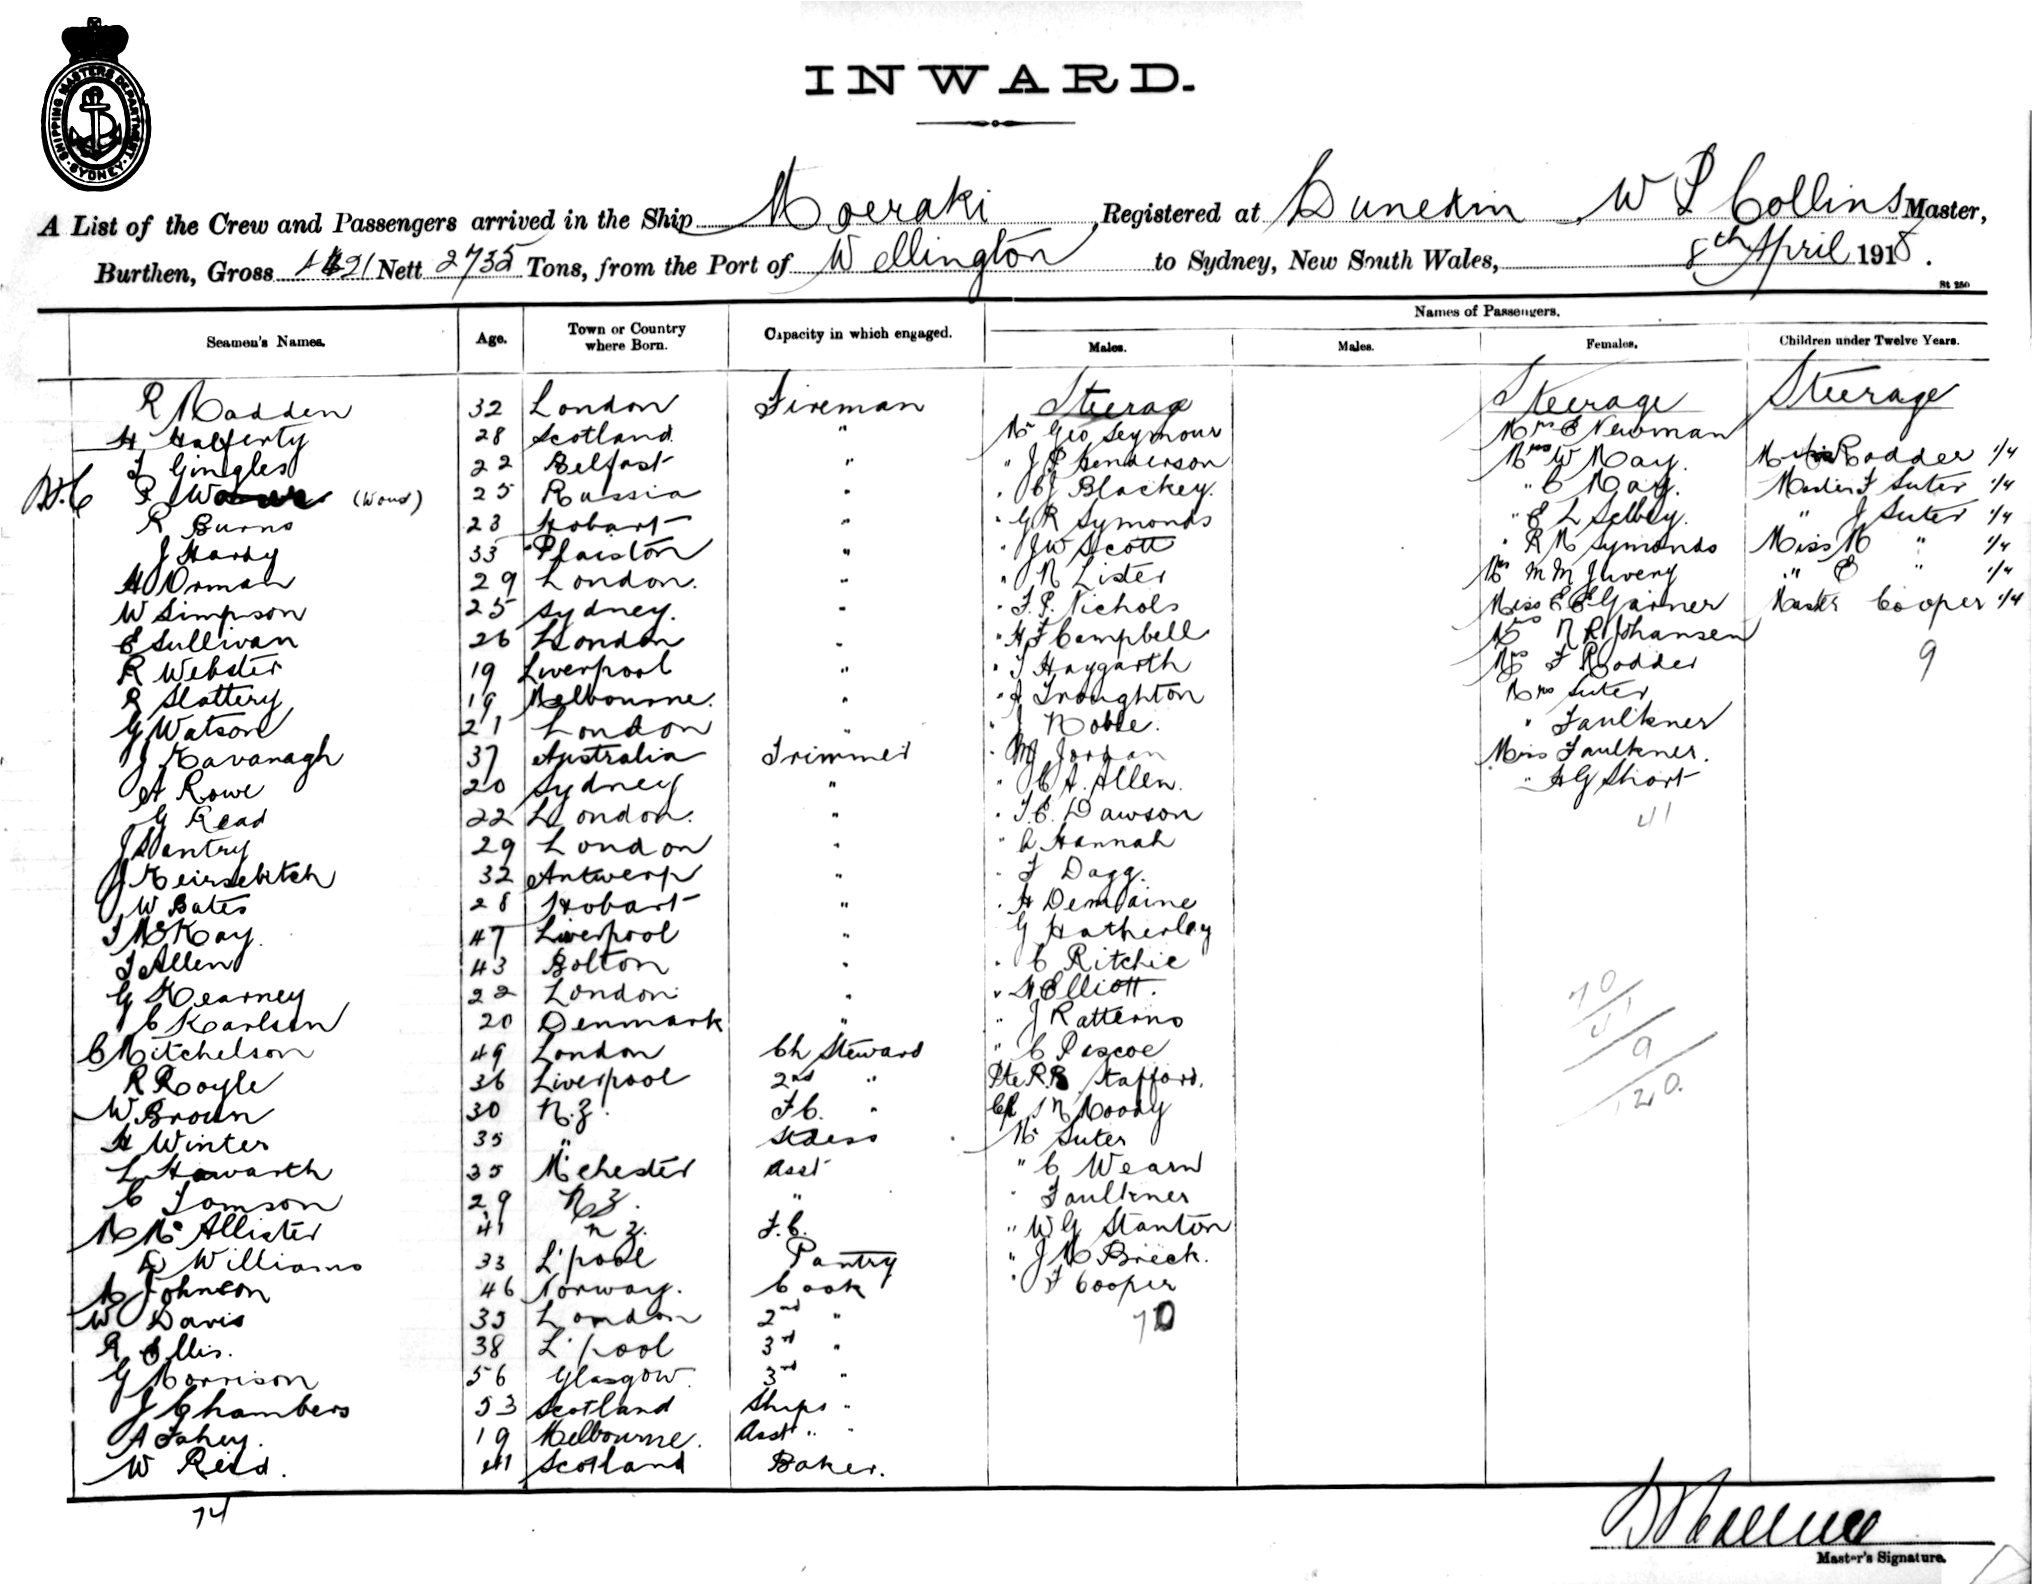 SHIPPING MASTERS DEPARTMENT SYDNEY
INWARD.
A List of the Crew and Passengers arrived in the Ship Moeraki, Registered at Dunedin W P Collins Master,
Burthen, Gross 21 Nett 2735 Tons, from the Port of Wellington to Sydney, New South Wales, 8th April 1918.
St 250
Names of Passengers.
Seamen's Names. Age. Town or Country where Born. Capacity in which engaged. Males. Males. Females. Children under Twelve Years.
R Madden 32 London Fireman Steerage Steerage Steerage
H Hafferty 28 Scotland " Mr Geo Seymour Mrs E Newman
F Gingles 22 Belfast " " J P Henderson Mrs W May. Rodder 1/4
P (Woud) 25 Russia " " C J Blackey. " C May. Master F Suter 1/4
R Burns 23 Hobart " " G R Symonds " E L Selby. " J Suter 1/4
J Hardy 33 Plaiston " " J W Scott " R M Symonds Miss M " 1/4
H Orman 29 London. " " N Lister Mrs M M Juveny " E " 1/4
W Simpson 25 Sydney. " " F. P. Nichols Miss E E Garner Master Cooper 1/4
E Sullivan 26 London " " H F Campbell Mrs N R Johansen 9
R Webster 19 Liverpool " " T Haygarth Mrs F Rodder
R Slattery 19 Melbourne. " " J Troughton Mrs Suter
G Watson 21 London " " J Noble. " Faulkner
J Kavanagh 37 Australia Trimmer " M Jordan Miss Faulkner.
A Rowe 20 Sydney " " C A. Allen. " H G Short
G Read 22 London. " " T. E. Dawson 41
J Bantry 29 London " " A Hannah
J Keirsebitch 32 Antwerp " " F Dagg.
W Bates 28 Hobart " " H Demaine
J McKay. 47 Liverpool " G Hatherley
J Allen 43 Bolton " " C Ritchie
G Kearney 22 London " " H Elliott. 70
C Karlsen 20 Denmark " " J Ratterns 41
C Mitchelson 49 London Ch Steward " C Pascoe 9
R Royle 36 Liverpool 2nd " Pte R. B Stafford. 120.
W Brown 30 N.Z. F.C. " Cpl J N Moody
H Winter 35 " Stdess Mr Suter
L Howarth 35 M'chester Asst " C Wearn
C Tomson 29 N Z. " " Faulkner
M McAllister 41 N Z. F.C. " W G Stanton
D Williams 33 L'pool Pantry " J M Brieck.
A Johnson 46 Norway. Cook " F Cooper
W Davis 35 London 2nd " 70
R Ellis. 38 L'pool 3rd "
G Morrison 56 Glasgow. 3rd "
J Chambers 53 Scotland Ships "
A Fahey. 19 Melbourne. Asst " "
W Reid. 41 Scotland Baker.
74
Master's Signature.